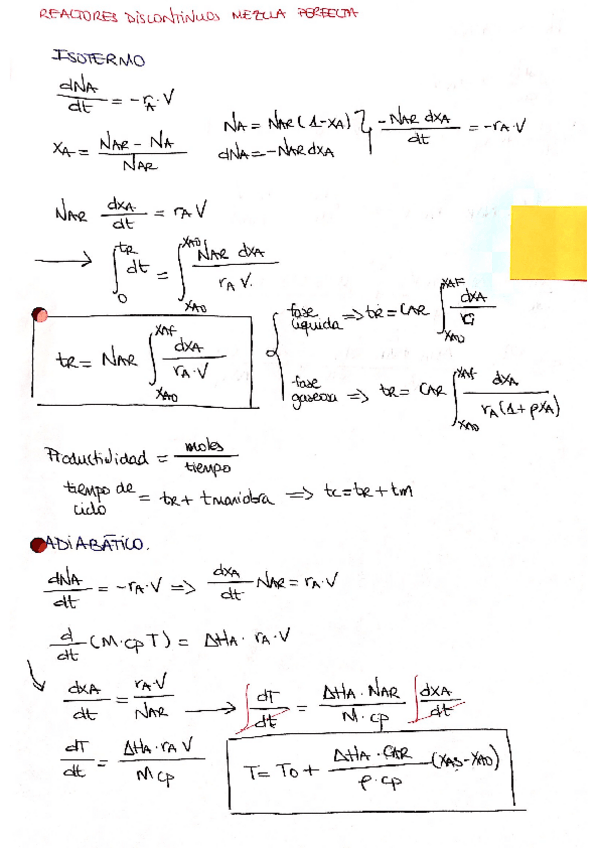 REACTORES DISCONTINUOS MEZCLA PERFECTA
ISOTERMO
dNA/dt = -rA·V
XA = (NAR - NA)/NAR
NA = NAR(1-XA)
dNA = -NAR dXA
} -NAR dXA/dt = -rA·V
NAR dXA/dt = rA V
→ ∫0^tR dt = ∫XAO^XAO NAR dXA/(rA V)
tR = NAR ∫XAO^XAF dXA/(rA·V)
fase líquida => tR = CAR ∫XAO^XAF dXA/ri
fase gaseosa => tR = CAR ∫XAO^XAF dXA/(rA(1+ρXA))
Productividad = moles/tiempo
tiempo de ciclo = tR + tmaniobra => tc = tR + tm
ADIABÁTICO.
dNA/dt = -rA·V => dXA/dt NAR = rA·V
d/dt (M·cp T) = ΔHA · rA·V
dXA/dt = rA·V/NAR → ∫ dT/dt = ΔHA·NAR/(M·cp) ∫ dXA/dt
dT/dt = ΔHA·rA V/(M cp)
T = T0 + ΔHA·CAR/(ρ·cp) (XAS - XAO)